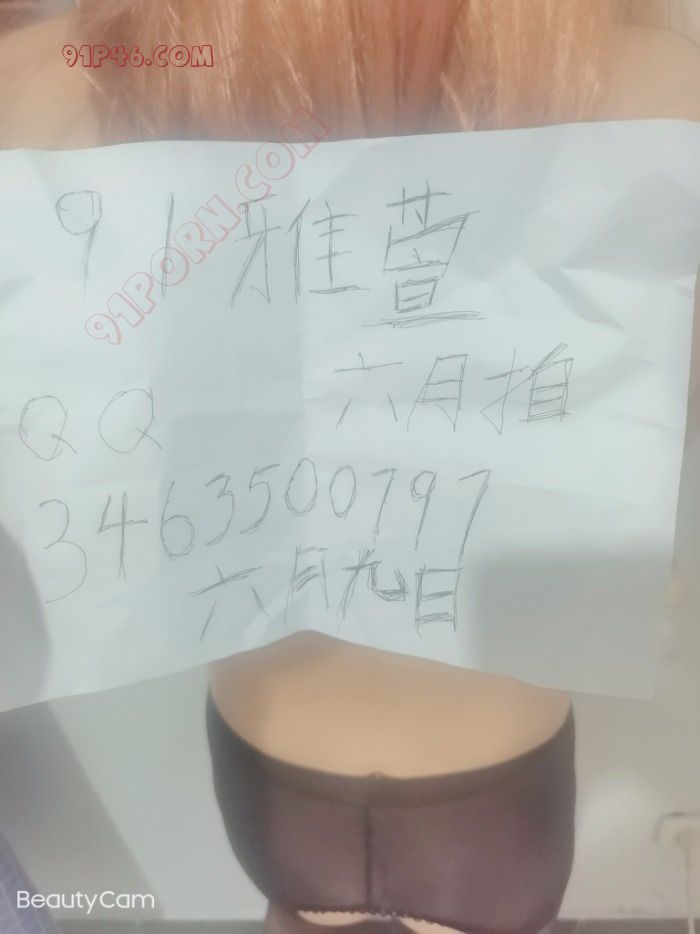 91P46.COM
91PORN.COM
91雅萱
六月拍
QQ
3463500797
六月九日
BeautyCam